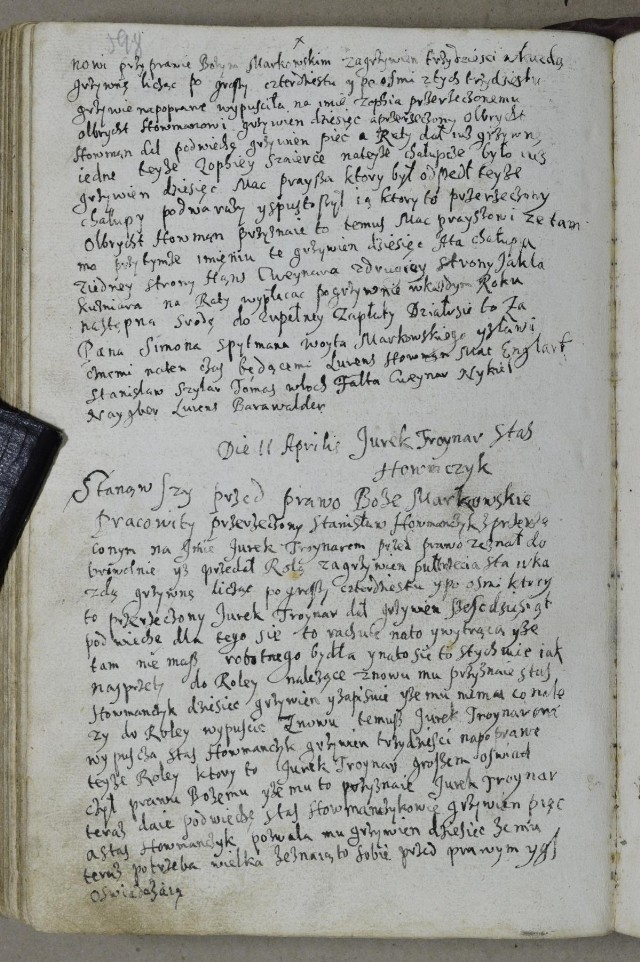 398
nowi przy prawie Bożym Markowskim zagrzywien trzydziesci wkazdą
grzywnę licząc po groszy czterdziestu y po osmi ztych trzydziestu
grzywien napoprawę wypusciła na imię Zophia przerzeczonemu
Olbrycht Howmanowi grzywien dziesięc aprzerzeczony Olbrycht
Howman dał podwiechę grzywien pięc a Raty dał iuż grzywnę
iedne teyże Zophiey
grzywien dziesięc Mac Praysza ktory był odszedł teyże
chałupy podwarazy yspustoszył ią ktory to przerzeczony
Olbrycht Howman przyznaie to temuż Mac Prayszowi że tam
ma przy tymże imieniu te grzywien dziesięc Ata chałupa
ziedney strony Hans Cweynara zdrugiey strony Jakla
Kuśniara na Raty wypłacac pogrzywnie wkażdym Roku
następna srodę do zupełney zapłaty Działosie to Za
Pana Simona Spytmana Woyta Markowskiego yzławni
czmemi naten czas będącemi Lurens Howman Mac Englart
Stanisław Szylar Tomas Włoch Falta Cweynar Nykiel
Naygber Lurens Barawalder
Die 11 Aprilis Jurek Troynar Staś
Howmczyk
Stanąwszy przed prawo Boże Markowskie
Pracowity przerzeczony Stanisław Howmanczyk zprzerze
conym na Imie Jurek Troynarem przed prawo zeznał do
browolnie yż przedał Rolą zagrzywien pułtrzecia sta wka
zdą grzywnę licząc po groszy czterdziestu ypo osmi ktory
to przerzeczony Jurek Troynar dał grzywien szescdziesiąt
podwiechę dla tego sie to rachuie nato ywytrąca yże
tam nie masz robotnego bydła ynato sie to stychnie iak
nasprzęty do Roley należące znowu mu przyznaie Staś
Howmanczyk dziesięc grzywien yzapisuie yże mu nimał co nale
zy do Roley wypuscic Znowu temuż Jurek Troynarowi
wypuszcza Staś Howmanczyk grzywien trzydziesci napoprawę
teyże Roley ktory to Jurek Troynar groszem oświad
czył prawu Bożemu yże mu to przyznaie Jurek Troynar
teraz daie podwiechę Staś Howmanczykowi grzywien pięc
a Staś Howmanczyk pozwala mu grzywien dziesięc
teraz potrzeba wielka zeznaią to sobie przed prawym
oswiadszaią